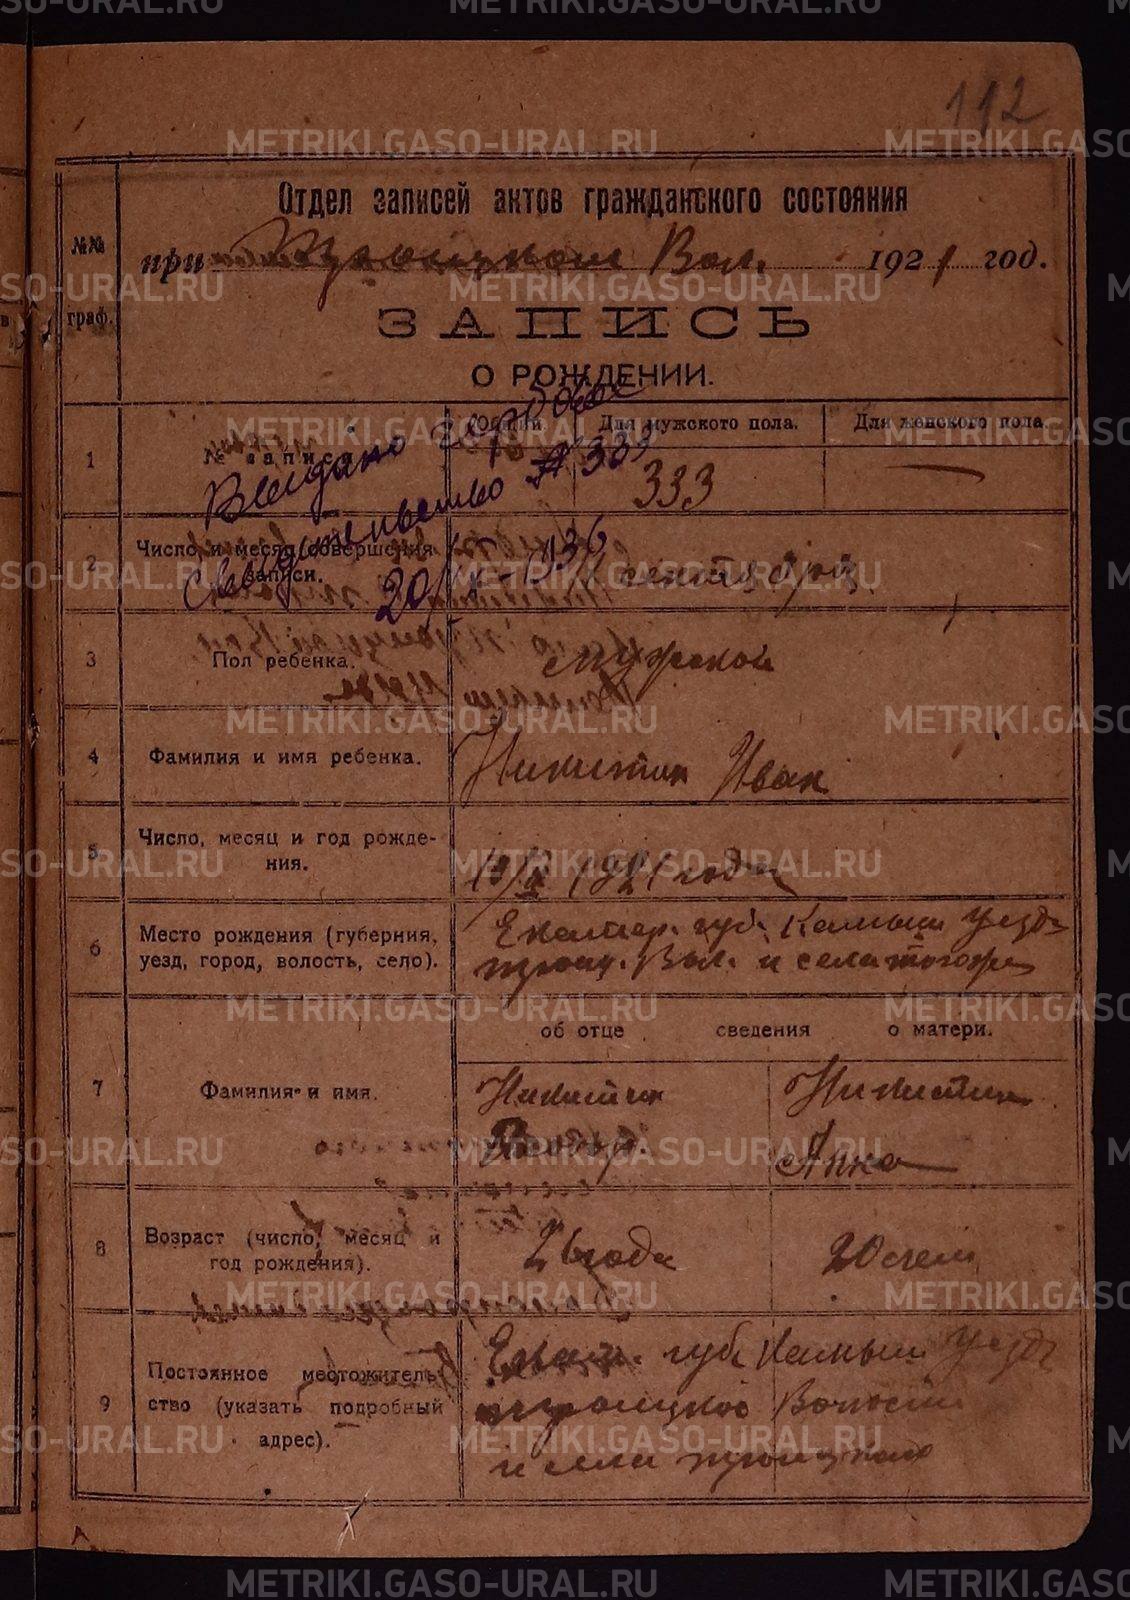 METRIKI.GASO-URAL.RU
112
Отдел записей актов гражданского состояния
№№ граф.
при Троицком Вол. 1921 год.
ЗАПИСЬ
О РОЖДЕНИИ.
1
№ записи
Общий.
Для мужского пола.
Для женского пола.
333
—
Выдано
свидетельство № 333
20/
1936
2
Число и месяц совершения
записи.
сентября.
3
Пол ребенка.
мужской
4
Фамилия и имя ребенка.
Никитин Иван
5
Число, месяц и год рожде-
ния.
1921 года
6
Место рождения (губерния,
уезд, город, волость, село).
Екатер. губ. Камыш уезда
троиц. Вол. и села тогоже
об отце сведения о матери.
7
Фамилия и имя.
Никитин
Никитина
Федор.
Анна
8
Возраст (число, месяц и
год рождения).
26 года
20 лет
9
Постоянное местожитель-
ство (указать подробный
адрес).
Екат. губ Камыш уезда
троицкой Волости
и села троицкаго